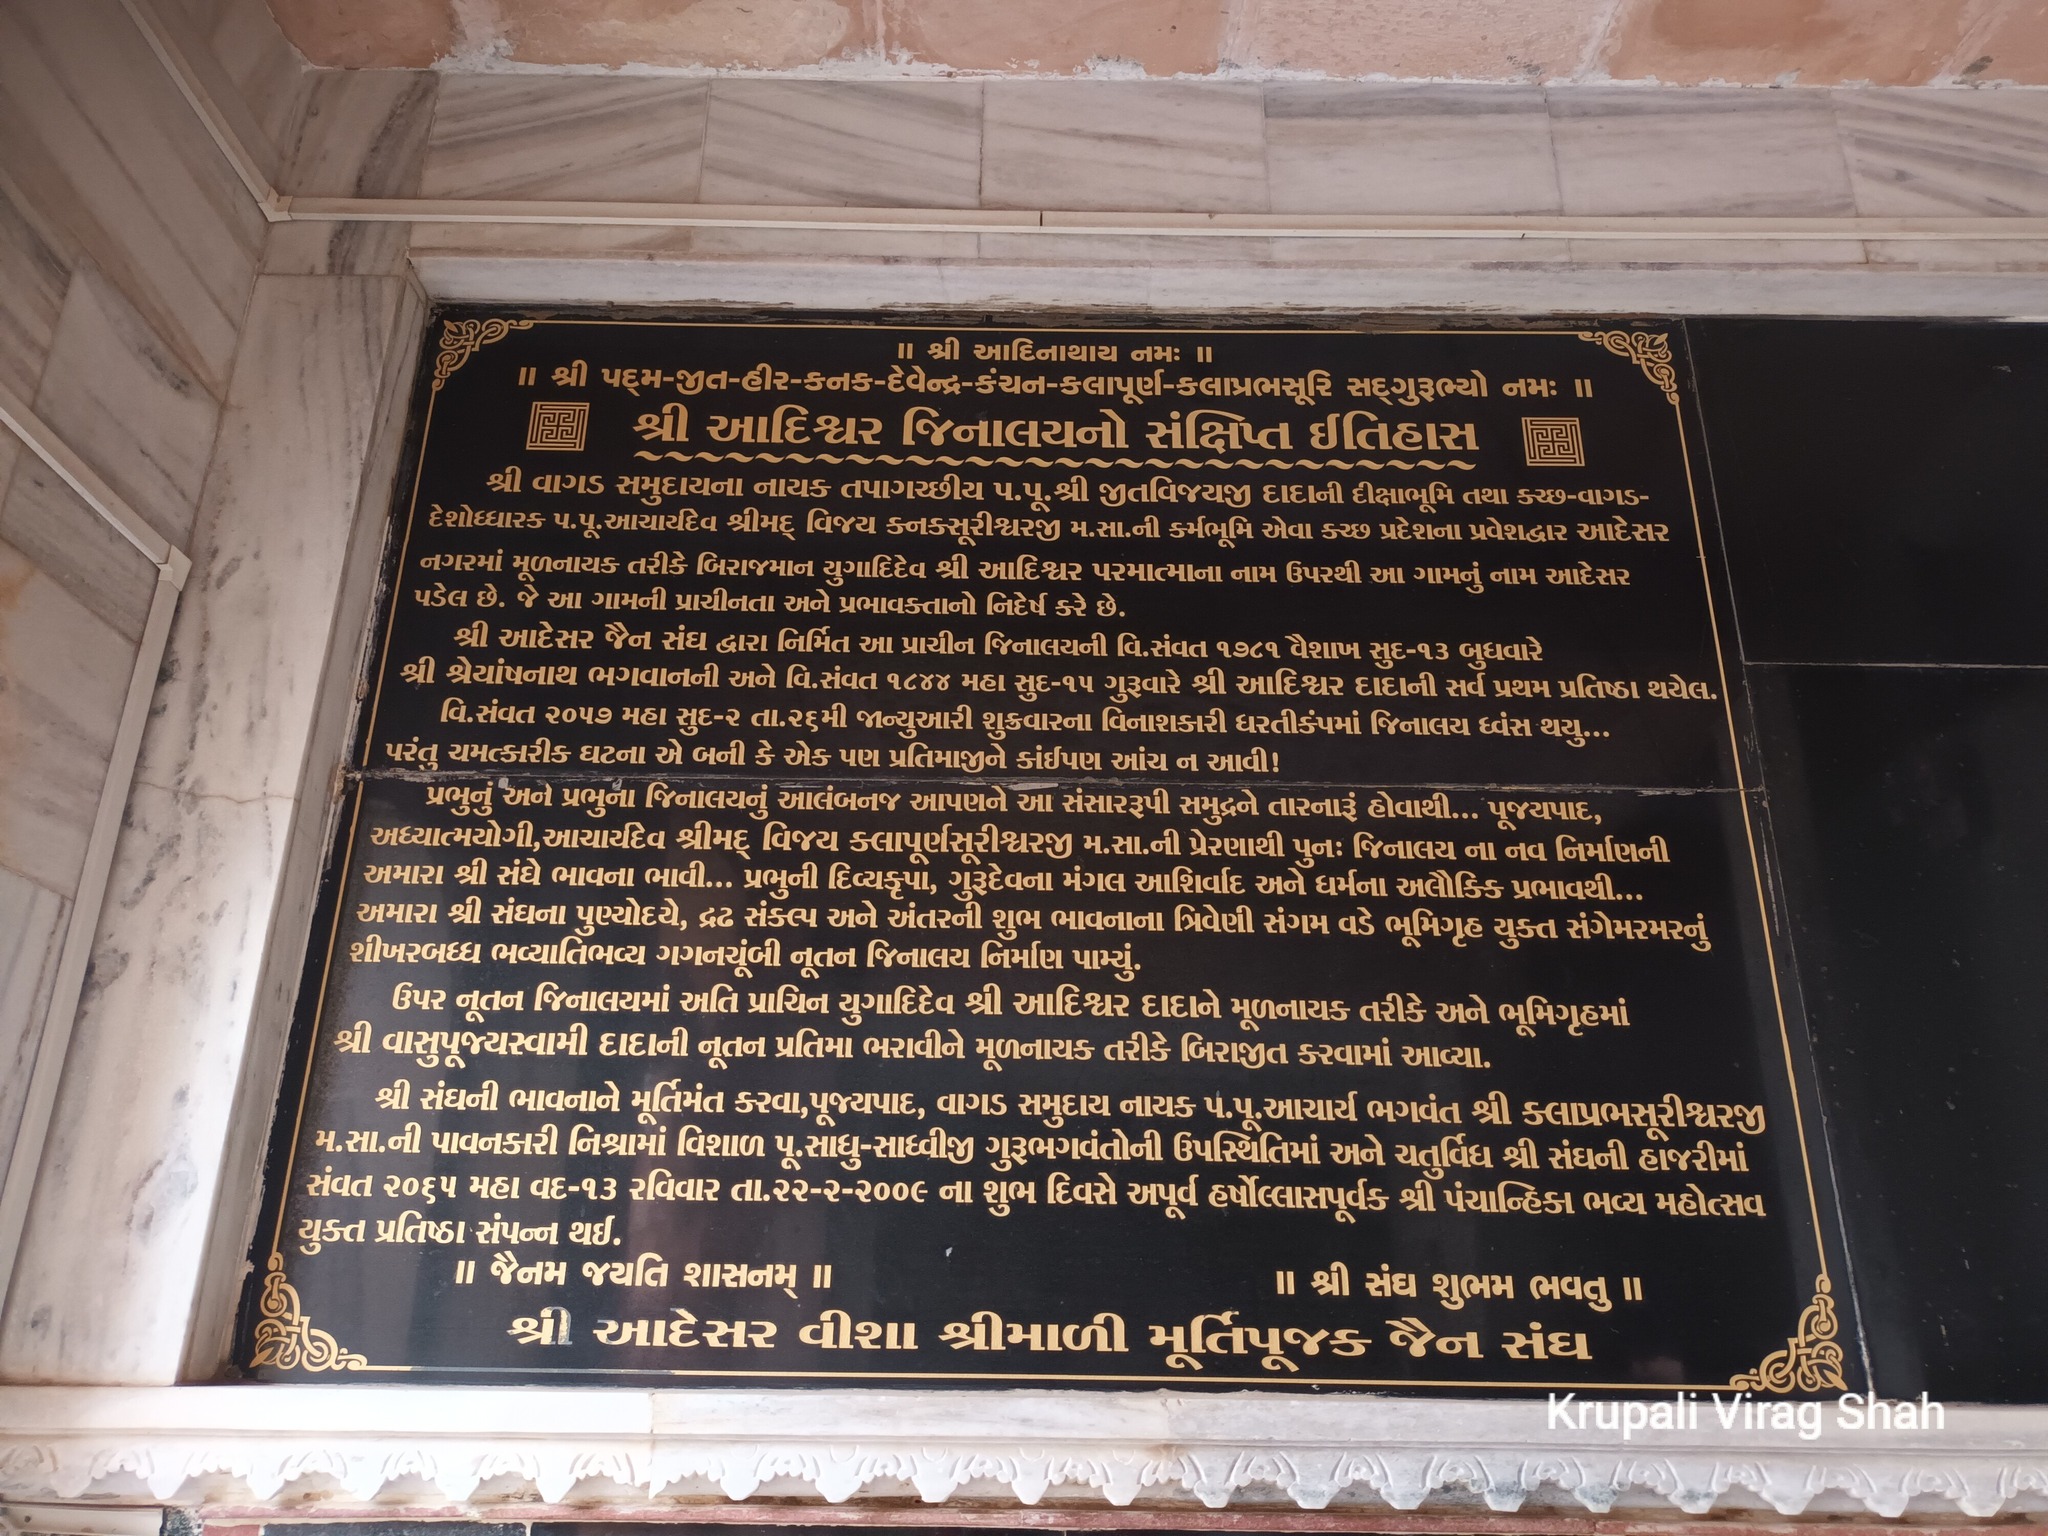 ॥ શ્રી આદિનાથાય નમઃ ॥
॥ શ્રી પદ્મ-જીત-હીર-કનક-દેવેન્દ્ર-કંચન-કલાપૂર્ણ-કલાપ્રભસૂરિ સદ્ગુરૂભ્યો નમઃ ॥
શ્રી આદિશ્વર જિનાલયનો સંક્ષિપ્ત ઈતિહાસ
શ્રી વાગડ સમુદાયના નાયક તપાગચ્છીય પ.પૂ.શ્રી જીતવિજયજી દાદાની દીક્ષાભૂમિ તથા કચ્છ-વાગડ-
દેશોધ્ધારક પ.પૂ.આચાર્યદેવ શ્રીમદ્ વિજય કનકસૂરીશ્વરજી મ.સા.ની કર્મભૂમિ એવા કચ્છ પ્રદેશના પ્રવેશદ્વાર આદેસર
નગરમાં મૂળનાયક તરીકે બિરાજમાન યુગાદિદેવ શ્રી આદિશ્વર પરમાત્માના નામ ઉપરથી આ ગામનું નામ આદેસર
પડેલ છે. જે આ ગામની પ્રાચીનતા અને પ્રભાવકતાનો નિદેર્ષ કરે છે.
શ્રી આદેસર જૈન સંઘ દ્વારા નિર્મિત આ પ્રાચીન જિનાલયની વિ.સંવત ૧૭૮૧ વૈશાખ સુદ-૧૩ બુધવારે
શ્રી શ્રેયાંષનાથ ભગવાનની અને વિ.સંવત ૧૮૪૪ મહા સુદ-૧૫ ગુરૂવારે શ્રી આદિશ્વર દાદાની સર્વ પ્રથમ પ્રતિષ્ઠા થયેલ.
વિ.સંવત ૨૦૫૭ મહા સુદ-૨ તા.૨૬મી જાન્યુઆરી શુક્રવારના વિનાશકારી ધરતીકંપમાં જિનાલય ધ્વંસ થયુ...
પરંતુ ચમત્કારીક ઘટના એ બની કે એક પણ પ્રતિમાજીને કાંઈપણ આંચ ન આવી!
પ્રભુનું અને પ્રભુના જિનાલયનું આલંબનજ આપણને આ સંસારરૂપી સમુદ્રને તારનારૂં હોવાથી... પૂજયપાદ,
અધ્યાત્મયોગી,આચાર્યદેવ શ્રીમદ્ વિજય કલાપૂર્ણસૂરીશ્વરજી મ.સા.ની પ્રેરણાથી પુનઃ જિનાલય ના નવ નિર્માણની
અમારા શ્રી સંઘે ભાવના ભાવી... પ્રભુની દિવ્યકૃપા, ગુરૂદેવના મંગલ આશિર્વાદ અને ધર્મના અલૌકિક પ્રભાવથી...
અમારા શ્રી સંઘના પુણ્યોદયે, દ્રઢ સંકલ્પ અને અંતરની શુભ ભાવનાના ત્રિવેણી સંગમ વડે ભૂમિગૃહ યુક્ત સંગેમરમરનું
શીખરબધ્ધ ભવ્યાતિભવ્ય ગગનચૂંબી નૂતન જિનાલય નિર્માણ પામ્યું.
ઉપર નૂતન જિનાલયમાં અતિ પ્રાચિન યુગાદિદેવ શ્રી આદિશ્વર દાદાને મૂળનાયક તરીકે અને ભૂમિગૃહમાં
શ્રી વાસુપૂજ્યસ્વામી દાદાની નૂતન પ્રતિમા ભરાવીને મૂળનાયક તરીકે બિરાજીત કરવામાં આવ્યા.
શ્રી સંઘની ભાવનાને મૂર્તિમંત કરવા,પૂજ્યપાદ, વાગડ સમુદાય નાયક પ.પૂ.આચાર્ય ભગવંત શ્રી કલાપ્રભસૂરીશ્વરજી
મ.સા.ની પાવનકારી નિશ્રામાં વિશાળ પૂ.સાધુ-સાધ્વીજી ગુરૂભગવંતોની ઉપસ્થિતિમાં અને ચતુર્વિધ શ્રી સંઘની હાજરીમાં
સંવત ૨૦૬૫ મહા વદ-૧૩ રવિવાર તા.૨૨-૨-૨૦૦૯ ના શુભ દિવસે અપૂર્વ હર્ષોલ્લાસપૂર્વક શ્રી પંચાન્હિકા ભવ્ય મહોત્સવ
યુક્ત પ્રતિષ્ઠા સંપન્ન થઈ.
॥ જૈનમ જયતિ શાસનમ્ ॥
॥ શ્રી સંઘ શુભમ ભવતુ ॥
શ્રી આદેસર વીશા શ્રીમાળી મૂર્તિપૂજક જૈન સંઘ
Krupali Virag Shah